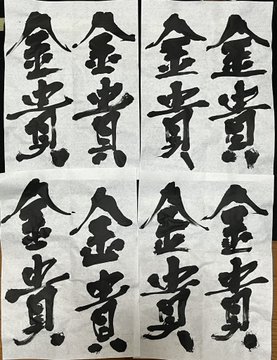 金貴
金貴
金貴
金貴
金貴
金貴
金貴
金貴